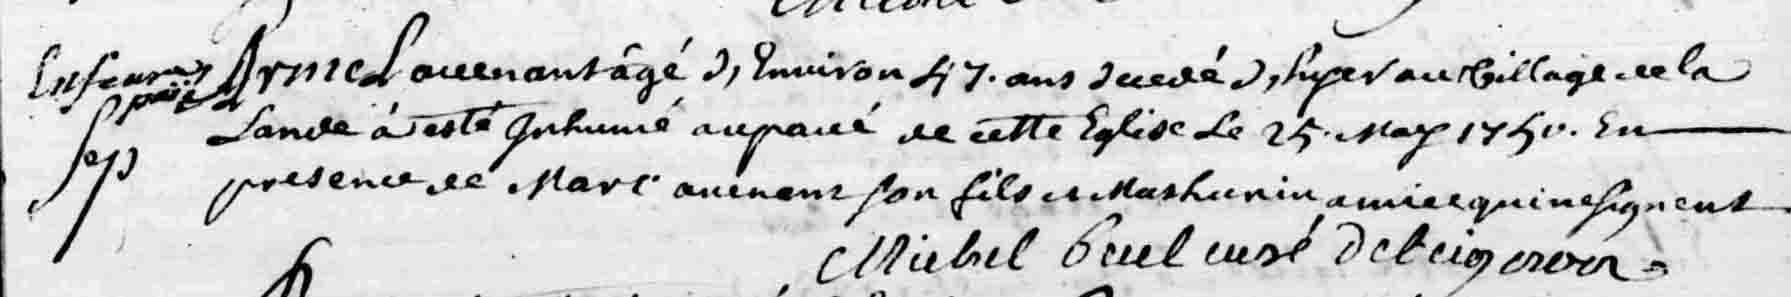 Armel avenant âgé d'Environ 47. ans decedé d'hyer au Village de la
Lande à esté Jnhumé au pavé de cette Eglise Le 25. May 1750. En
sep presence de Marc avenant son fils et Mathurin qui ne signent
Michel curé